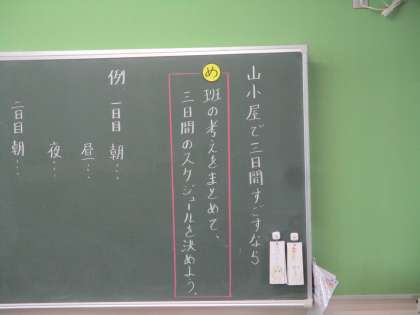 山小屋で三日間すごすなら
め
班の考えをまとめて、
三日間のスケジュールを決めよう。
例
一日目 朝…
昼…
夜…
二日目 朝…